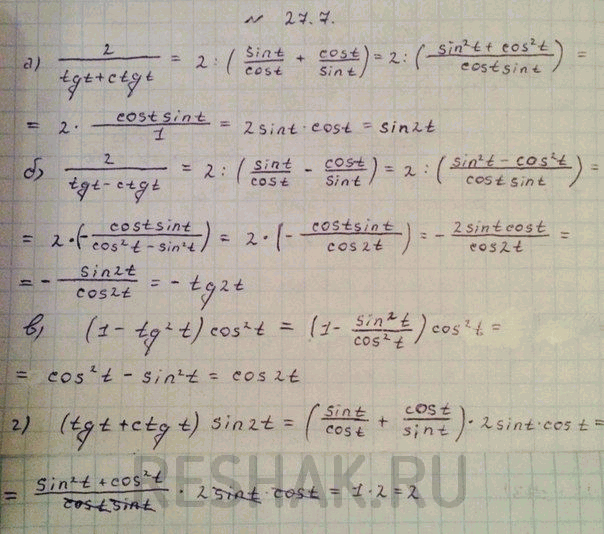 № 27.7.
а) 2/(tgt+ctgt) = 2 : (sint/cost + cost/sint) = 2 : ((sin²t + cos²t)/(cost sint)) =
= 2 · (cost sint)/1 = 2sint · cost = sin2t
б) 2/(tgt-ctgt) = 2 : (sint/cost - cost/sint) = 2 : ((sin²t - cos²t)/(cost sint)) =
= 2 · (-(cost sint)/(cos²t - sin²t)) = 2 · (-(cost sint)/(cos2t)) = -(2sint cost)/(cos2t) =
= -(sin2t)/(cos2t) = -tg2t
в) (1-tg²t) cos²t = (1-(sin²t)/(cos²t)) cos²t =
= cos²t - sin²t = cos2t
г) (tgt+ctgt) sin2t = (sint/cost + cost/sint) · 2sint · cost =
= (sin²t + cos²t)/(cost sint) · 2 sint · cost = 1 · 2 = 2
RESHAK.RU